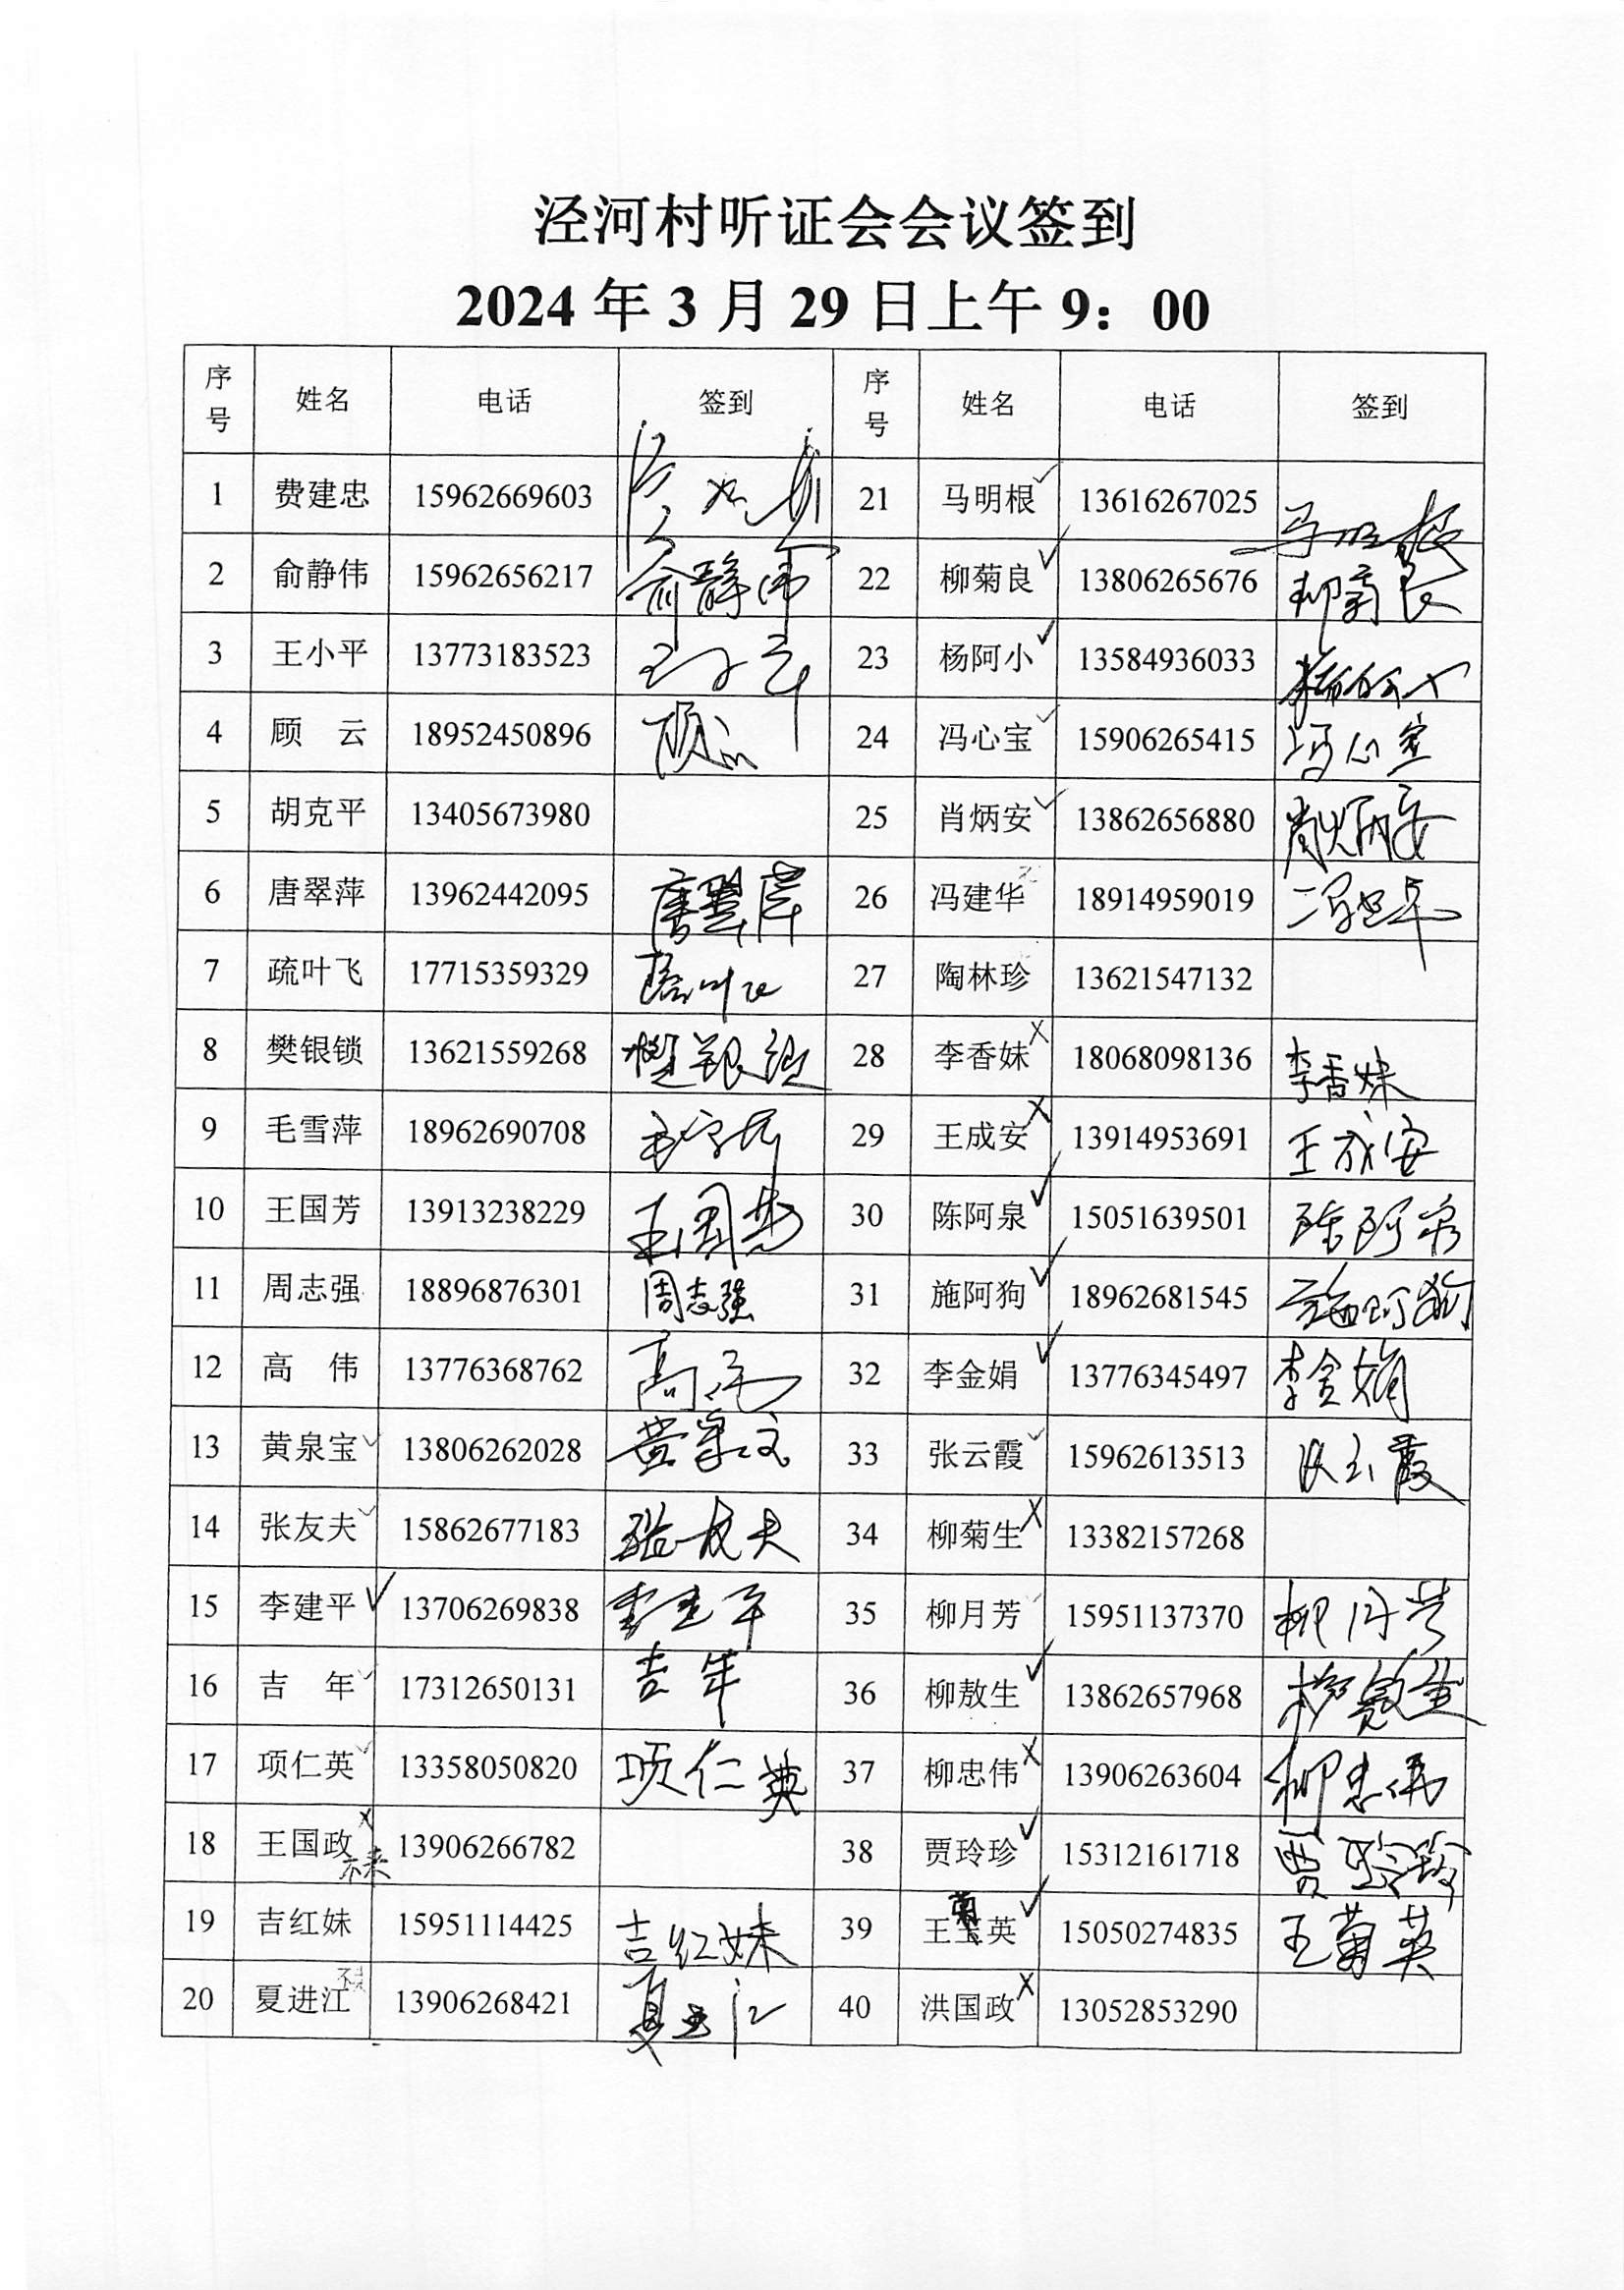 泾河村听证会会议签到
2024年3月29日上午9：00
序号 姓名 电话 签到 序号 姓名 电话 签到
1 费建忠 15962669603 21 马明根 ✓ 13616267025 马明根
2 俞静伟 15962656217 俞静伟 22 柳菊良 ✓ 13806265676 柳菊良
3 王小平 13773183523 王小平 23 杨阿小 ✓ 13584936033 杨阿小
4 顾 云 18952450896 顾云 24 冯心宝 ✓ 15906265415 冯心宝
5 胡克平 13405673980 25 肖炳安 ✓ 13862656880 肖炳安
6 唐翠萍 13962442095 唐翠萍 26 冯建华 18914959019 冯建华
7 疏叶飞 17715359329 疏叶飞 27 陶林珍 13621547132
8 樊银锁 13621559268 樊银锁 28 李香妹 X 18068098136 李香妹
9 毛雪萍 18962690708 毛雪萍 29 王成安 X 13914953691 王成安
10 王国芳 13913238229 王国芳 30 陈阿泉 ✓ 15051639501 陈阿泉
11 周志强 18896876301 周志强 31 施阿狗 ✓ 18962681545 施阿狗
12 高 伟 13776368762 高伟 32 李金娟 ✓ 13776345497 李金娟
13 黄泉宝 ✓ 13806262028 黄泉宝 33 张云霞 ✓ 15962613513 张云霞
14 张友夫 ✓ 15862677183 张友夫 34 柳菊生 X 13382157268
15 李建平 ✓ 13706269838 李建平 35 柳月芳 ✓ 15951137370 柳月芳
16 吉 年 ✓ 17312650131 吉年 36 柳敖生 ✓ 13862657968 柳敖生
17 项仁英 ✓ 13358050820 项仁英 37 柳忠伟 X 13906263604 柳忠伟
18 王国政 X 未来 13906266782 38 贾玲珍 ✓ 15312161718 贾玲珍
19 吉红妹 15951114425 吉红妹 39 王菊英 ✓ 15050274835 王菊英
20 夏进江 13906268421 夏进江 40 洪国政 X 13052853290